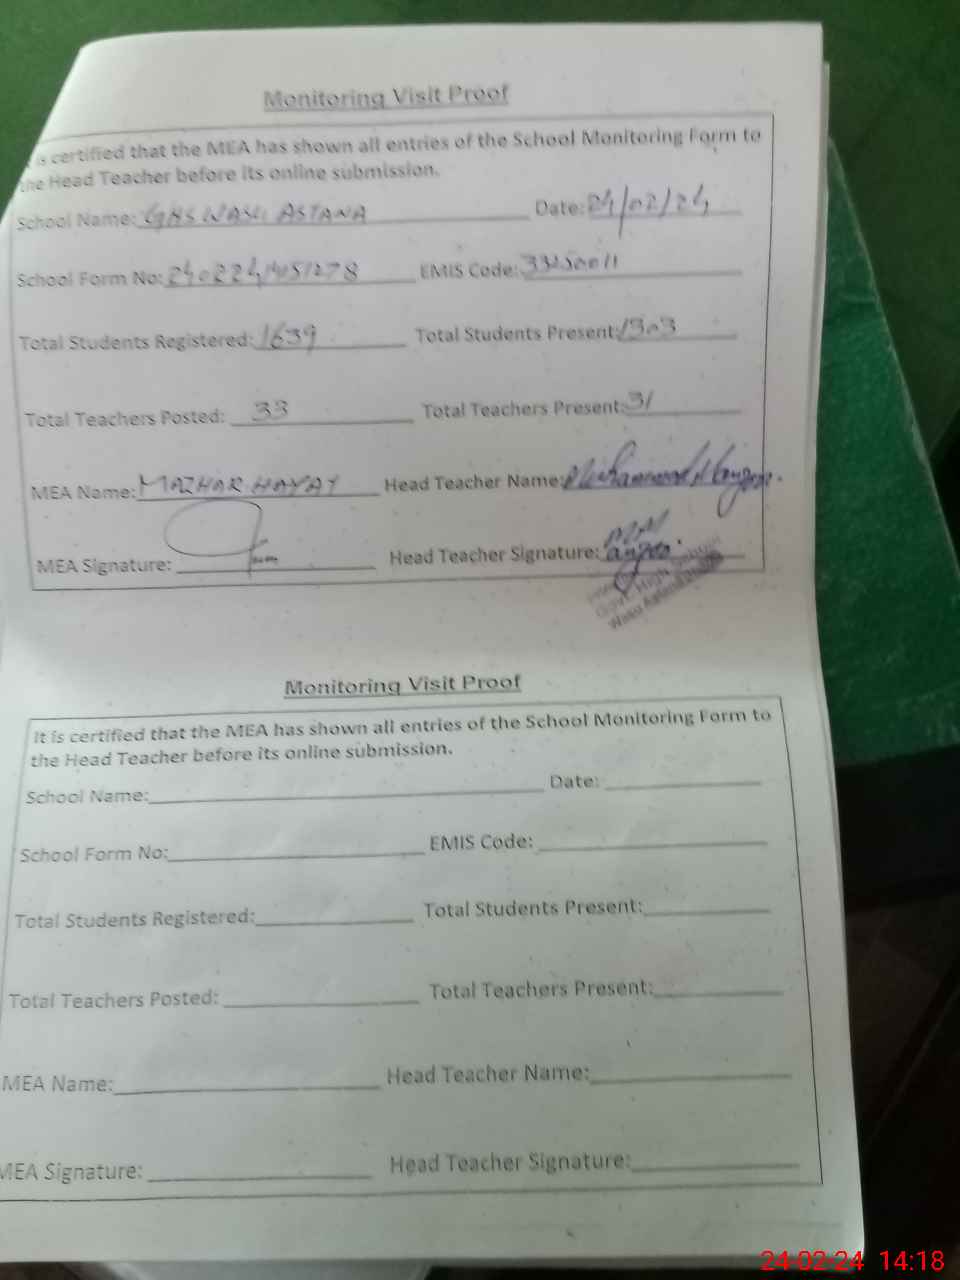 Monitoring Visit Proof
is certified that the MEA has shown all entries of the School Monitoring Form to
the Head Teacher before its online submission.
School Name: GHS WASU ASTANA Date: 24/02/24
School Form No: EMIS Code:
Total Students Registered: 1639 Total Students Present: 1303
Total Teachers Posted: 33 Total Teachers Present: 31
MEA Name: MAZHAR HAYAT Head Teacher Name: Muhammad
MEA Signature: Head Teacher Signature:
Govt. High School
Wasu Astana
Monitoring Visit Proof
It is certified that the MEA has shown all entries of the School Monitoring Form to
the Head Teacher before its online submission.
School Name: Date:
School Form No: EMIS Code:
Total Students Registered: Total Students Present:
Total Teachers Posted: Total Teachers Present:
MEA Name: Head Teacher Name:
MEA Signature: Head Teacher Signature:
24-02-24 14:18